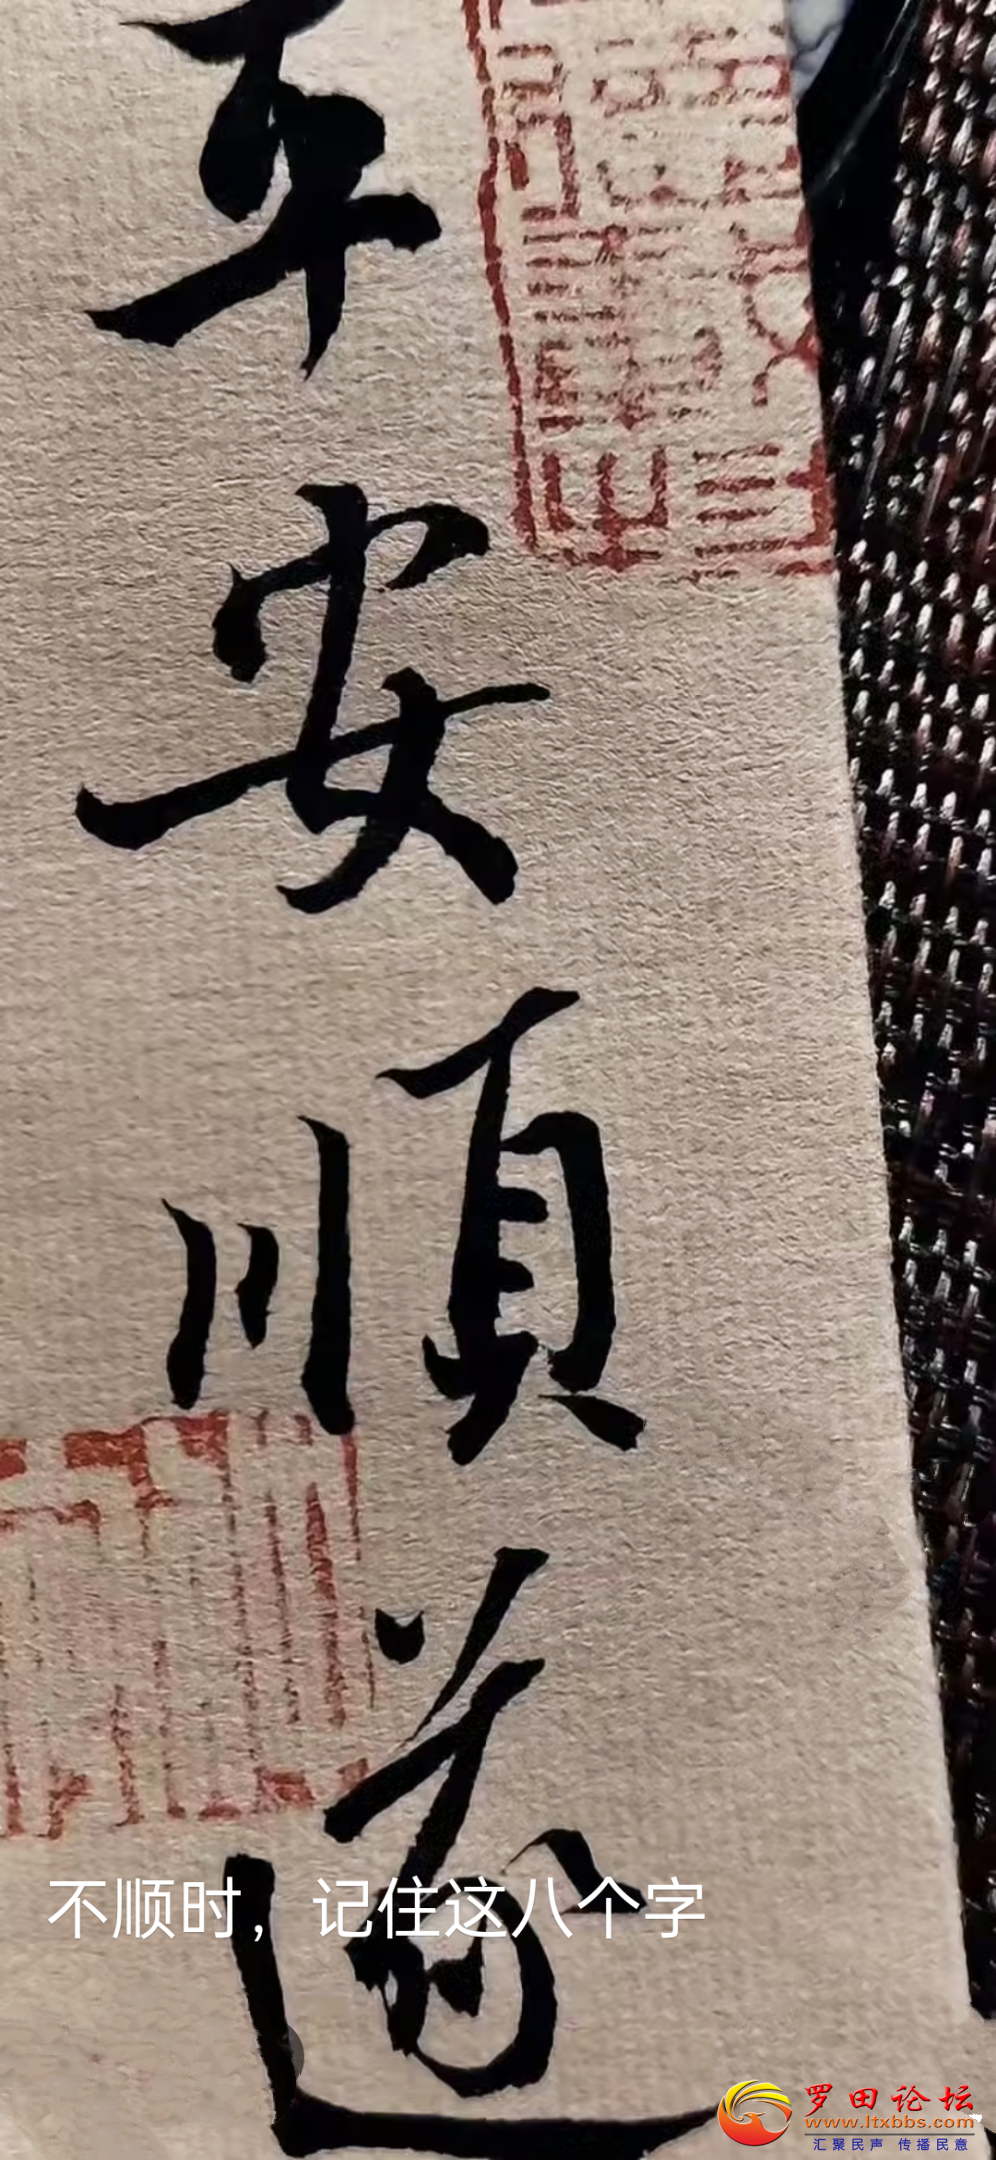 平安順遂
不顺时，记住这八个字
罗田论坛
www.ltxbbs.com
汇聚民声 传播民意